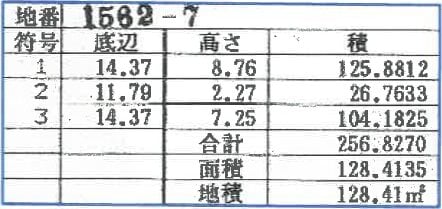 地番 1562-7
符号 底辺 高さ 積
1 14.37 8.76 125.8812
2 11.79 2.27 26.7633
3 14.37 7.25 104.1825
合計 256.8270
面積 128.4135
地積 128.41㎡